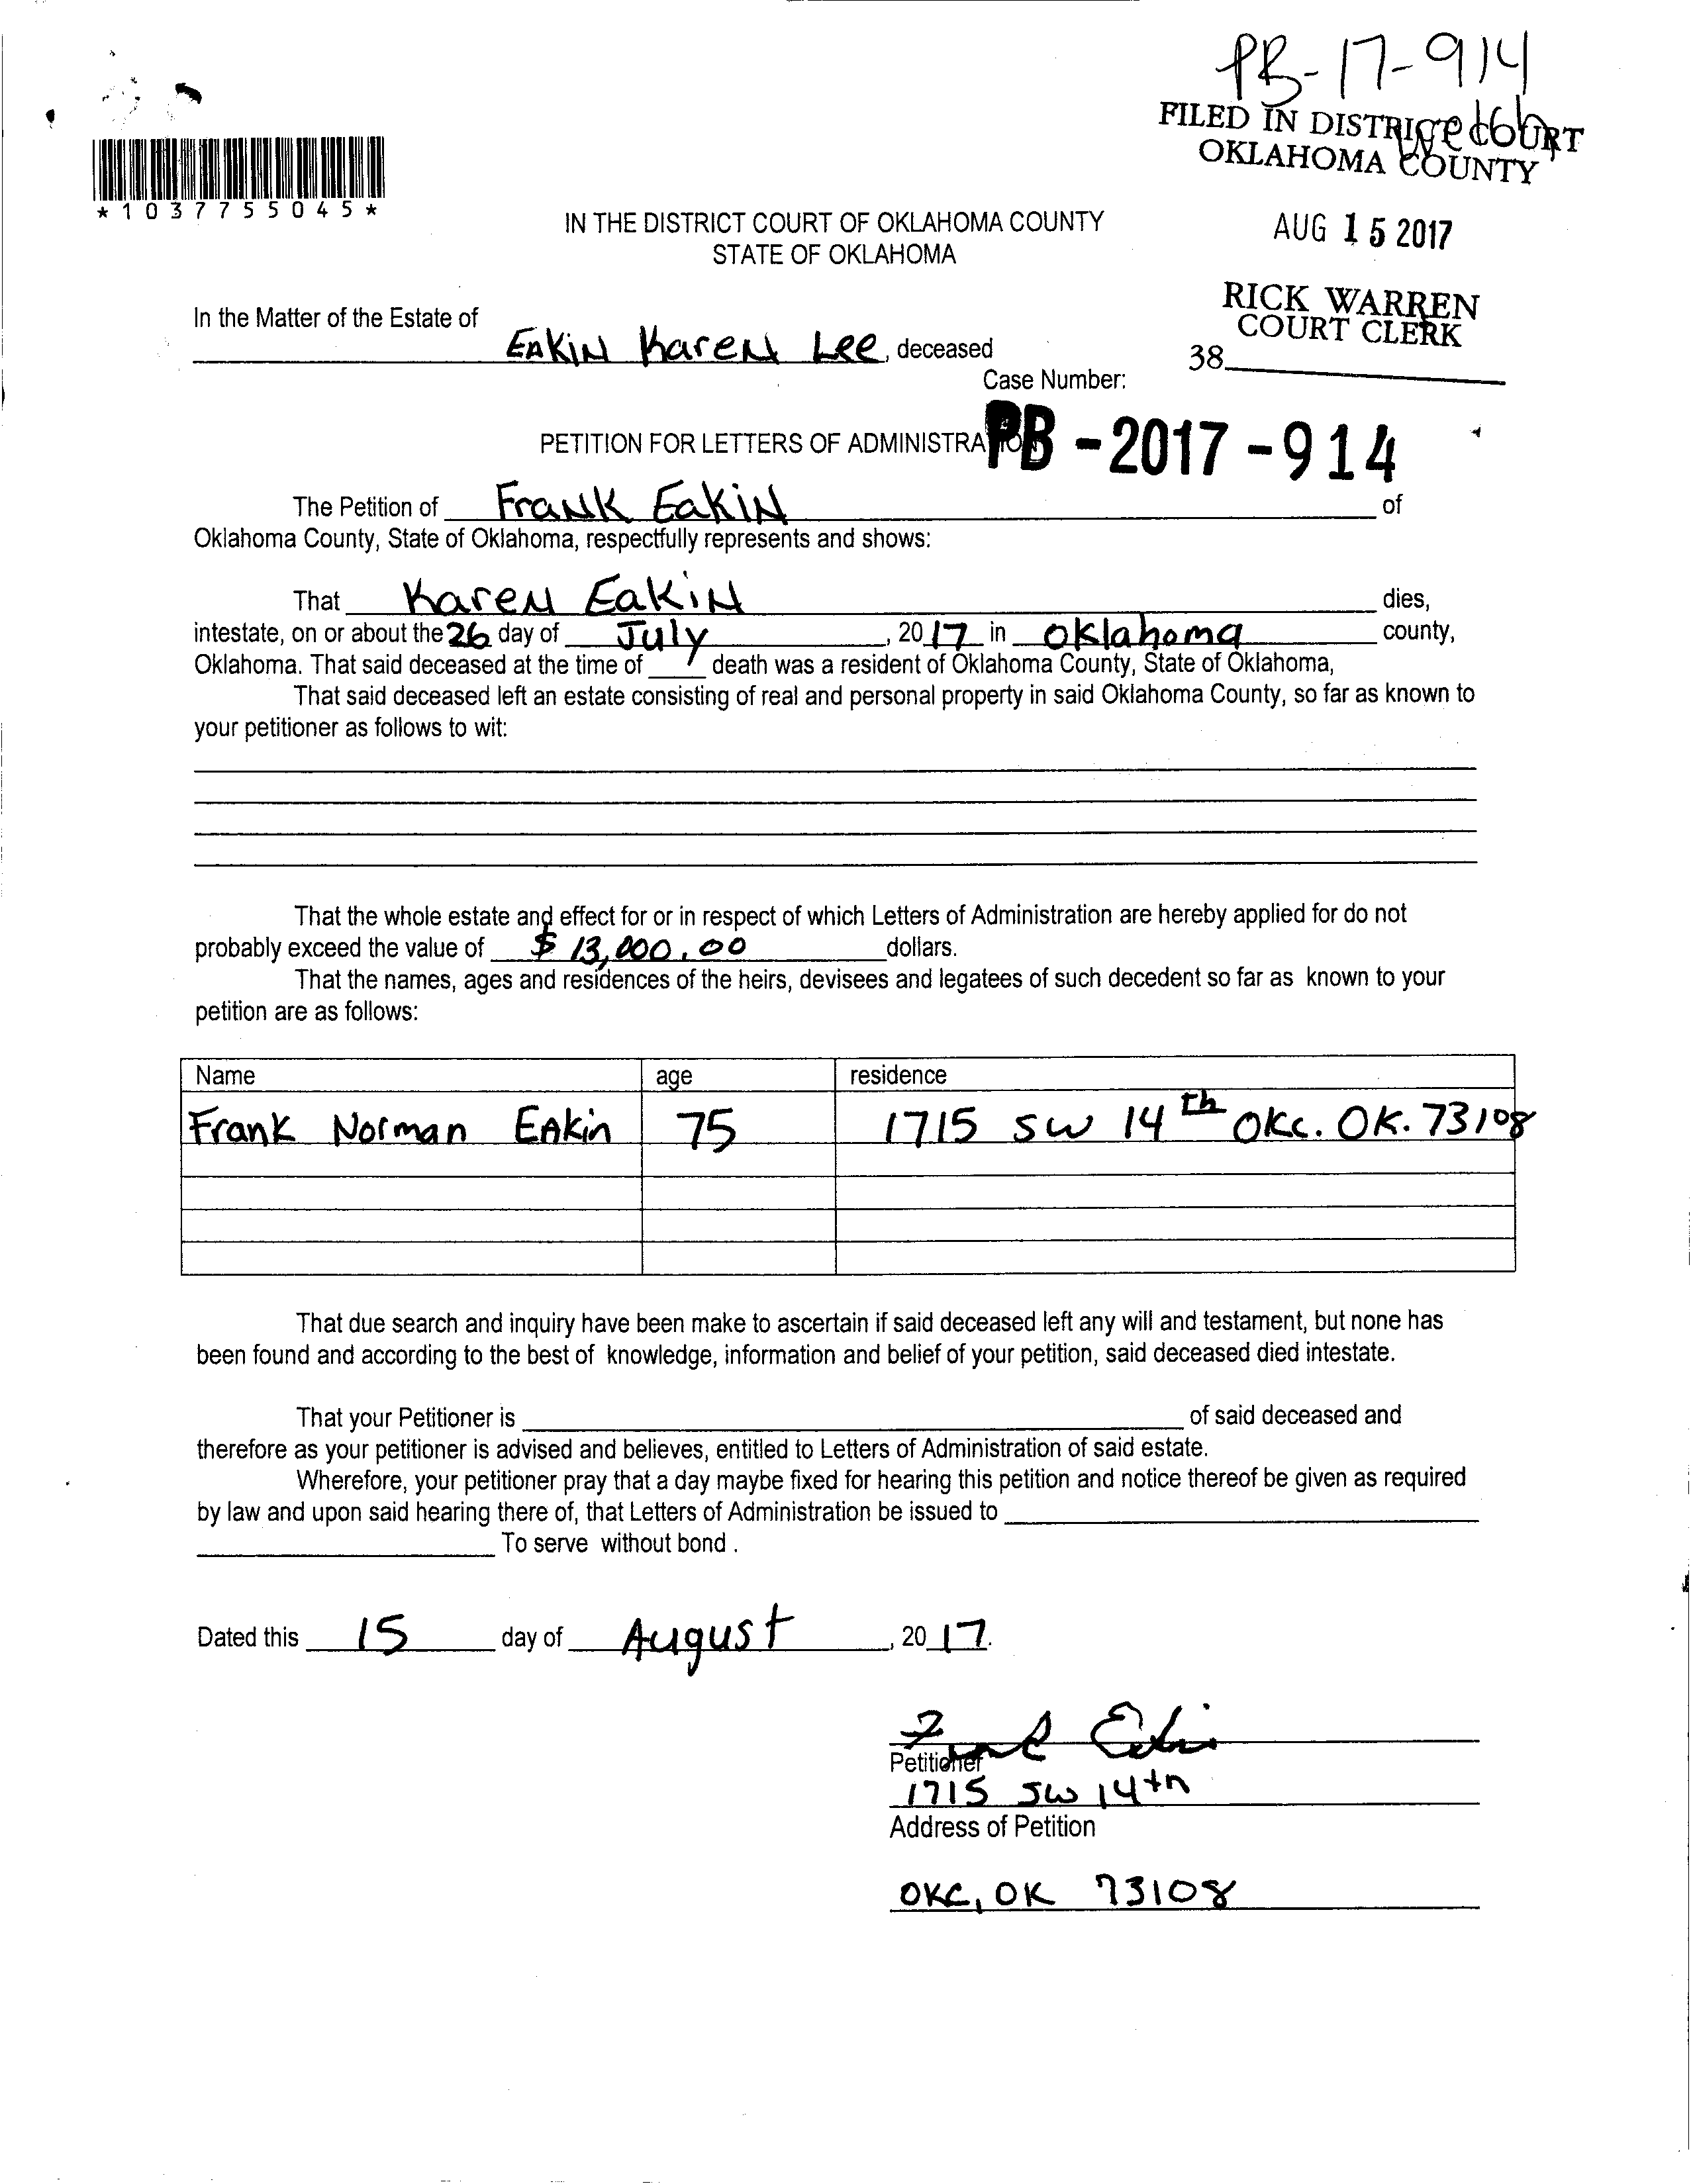 PB-17-914
FILED IN DISTRICT COURT
OKLAHOMA COUNTY
*1037755045*
IN THE DISTRICT COURT OF OKLAHOMA COUNTY
STATE OF OKLAHOMA
AUG 15 2017
RICK WARREN
COURT CLERK
38
In the Matter of the Estate of
EAKIN KareN Lee, deceased
Case Number:
PB-2017-914
PETITION FOR LETTERS OF ADMINISTRATION
The Petition of FraNK EaKiN of
Oklahoma County, State of Oklahoma, respectfully represents and shows:
That KareN EaKiN dies,
intestate, on or about the 26 day of July, 2017 in Oklahoma county,
Oklahoma. That said deceased at the time of ____ death was a resident of Oklahoma County, State of Oklahoma,
That said deceased left an estate consisting of real and personal property in said Oklahoma County, so far as known to
your petitioner as follows to wit:
That the whole estate and effect for or in respect of which Letters of Administration are hereby applied for do not
probably exceed the value of $ 13,000.00 dollars.
That the names, ages and residences of the heirs, devisees and legatees of such decedent so far as known to your
petition are as follows:
Name age residence
Frank Norman EAkin 75 1715 SW 14th OKC. OK. 73108
That due search and inquiry have been make to ascertain if said deceased left any will and testament, but none has
been found and according to the best of knowledge, information and belief of your petition, said deceased died intestate.
That your Petitioner is ____ of said deceased and
therefore as your petitioner is advised and believes, entitled to Letters of Administration of said estate.
Wherefore, your petitioner pray that a day maybe fixed for hearing this petition and notice thereof be given as required
by law and upon said hearing there of, that Letters of Administration be issued to ____
____ To serve without bond .
Dated this 15 day of August, 2017.
Frank Eakin
Petitioner
1715 SW 14th
Address of Petition
OKC, OK 73108